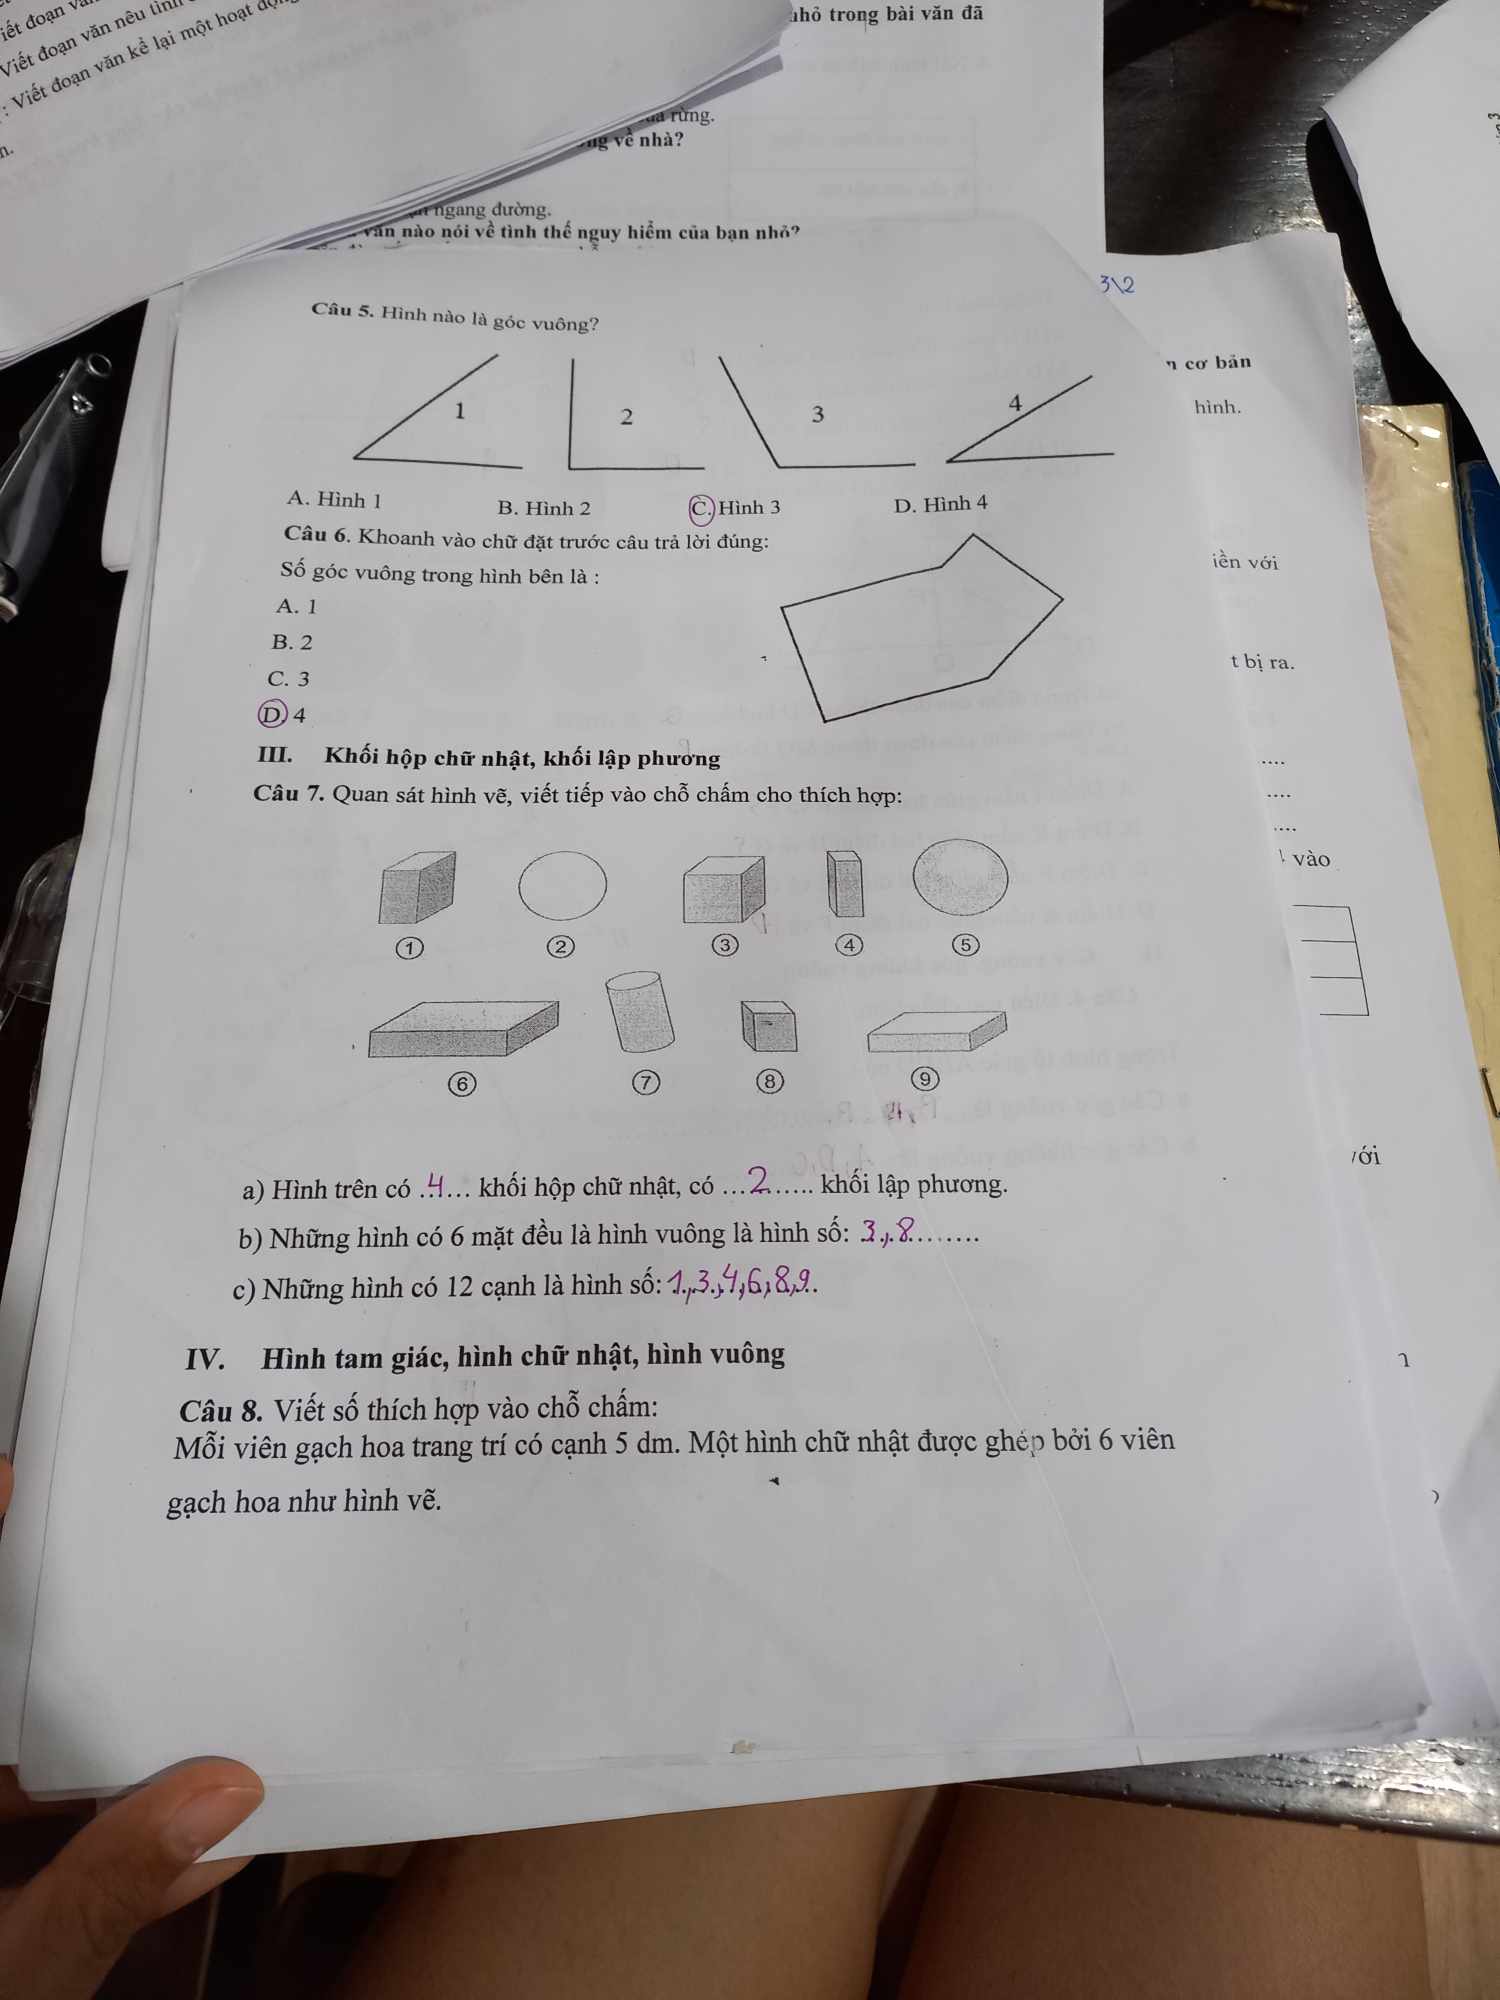 iết đoạn
Viết đoạn văn nêu tình
: Viết đoạn văn kể lại một hoạt
n.
nhỏ trong bài văn đã
rừng.
về nhà?
ngang đường.
văn nào nói về tình thế nguy hiểm của bạn nhỏ?
3\2
Câu 5. Hình nào là góc vuông?
1
2
3
4
A. Hình 1 B. Hình 2 C. Hình 3 D. Hình 4
Câu 6. Khoanh vào chữ đặt trước câu trả lời đúng:
Số góc vuông trong hình bên là :
A. 1
B. 2
C. 3
D. 4
III. Khối hộp chữ nhật, khối lập phương
Câu 7. Quan sát hình vẽ, viết tiếp vào chỗ chấm cho thích hợp:
1 2 3 4 5
6 7 8 9
a) Hình trên có ..4... khối hộp chữ nhật, có ...2..... khối lập phương.
b) Những hình có 6 mặt đều là hình vuông là hình số: 3,.8........
c) Những hình có 12 cạnh là hình số: 1,3,4,6,8,9..
IV. Hình tam giác, hình chữ nhật, hình vuông
Câu 8. Viết số thích hợp vào chỗ chấm:
Mỗi viên gạch hoa trang trí có cạnh 5 dm. Một hình chữ nhật được ghép bởi 6 viên
gạch hoa như hình vẽ.
cơ bản
hình.
iền với
t bị ra.
....
....
....
vào
với